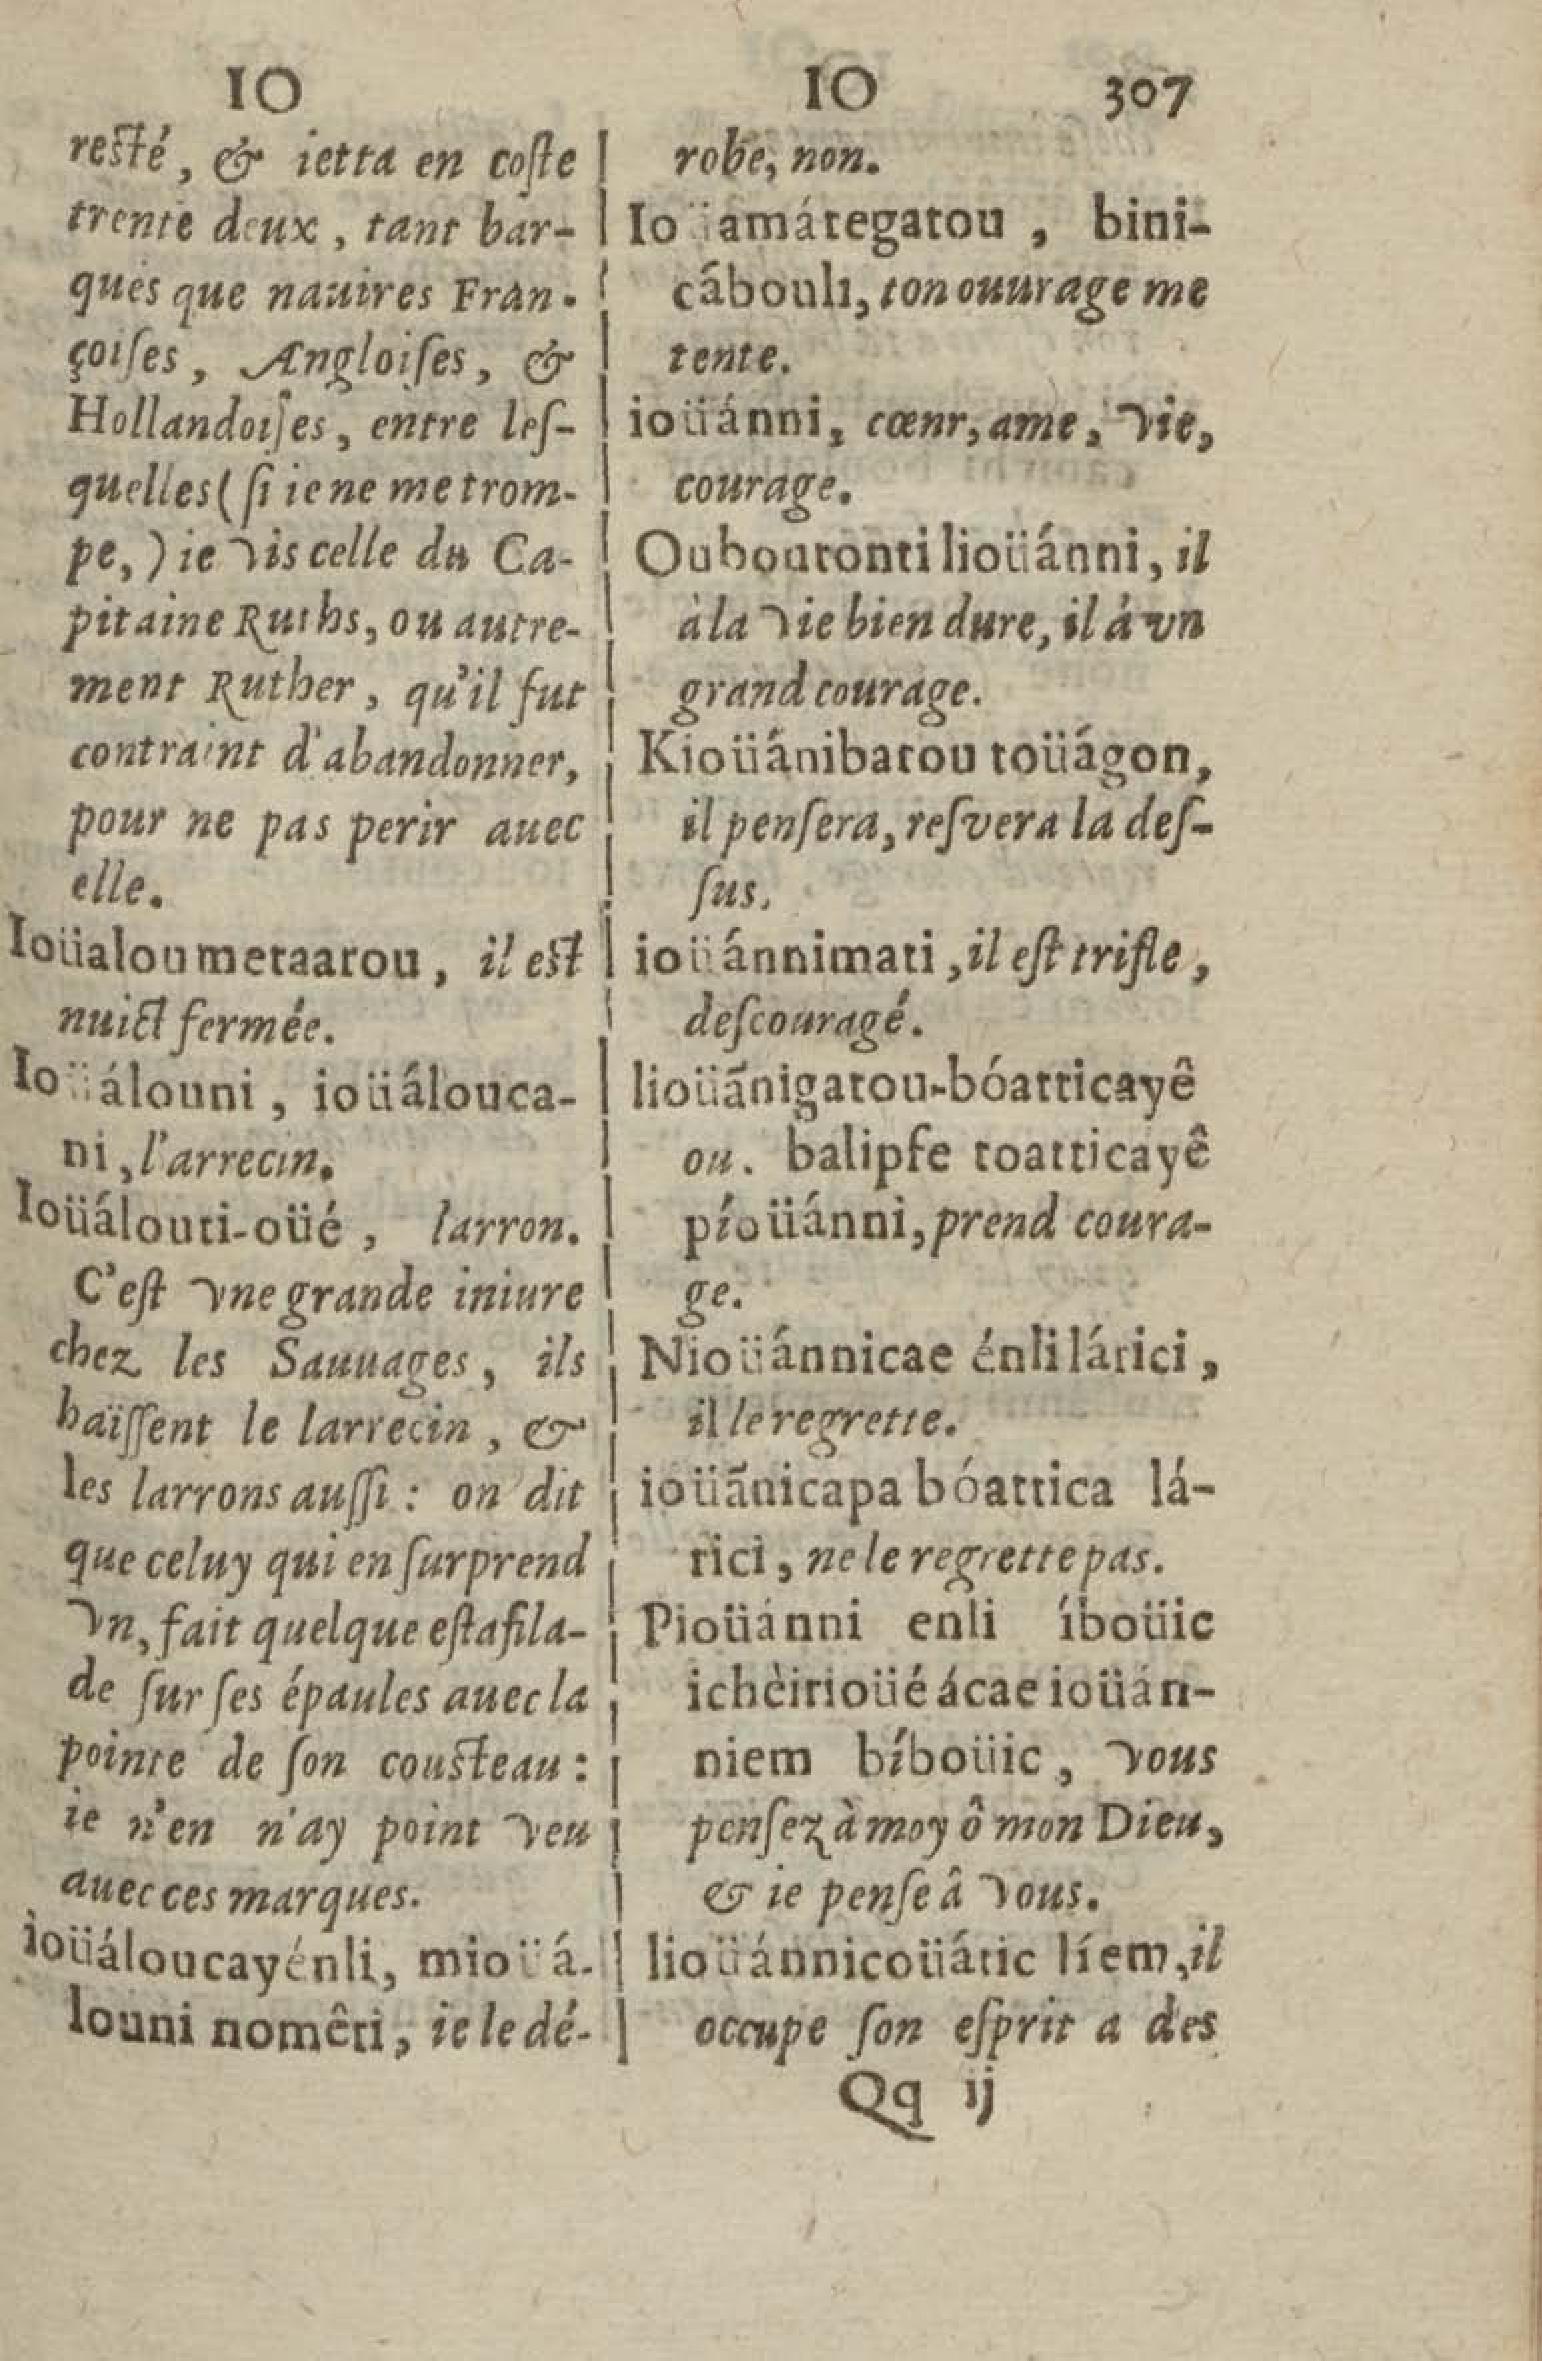 IO
resté, & ietta en coſte
trente deux, tant bar-
ques que nauires Fran-
çoiſes, Angloiſes, &
Hollandoiſes, entre leſ-
quelles (ſi ie ne me trom-
pe,) ie vis celle du Ca-
pitaine Ruths, ou autre-
ment Ruther, qu'il fut
contraint d'abandonner,
pour ne pas perir auec
elle.
Ioüaloumetaarou, il est
nuict fermée.
Ioüálouni, ioüálouca-
ni, l'arrecin.
Ioüálouti-oüé, larron.
C'eſt vne grande iniure
chez les Sauuages, ils
haïſſent le larrecin, &
les larrons auſſi : on dit
que celuy qui en ſurprend
vn, fait quelque eſtafila-
de ſur ſes épaules auec la
pointe de ſon cousteau :
ie n'en n'ay point veu
auec ces marques.
ìoüáloucayénli, mioüá-
louni nomêti, ie le dé-
IO 307
robe, non.
Ioüamátegatou, bini-
cábouli, ton ouurage me
tente.
ioüánni, cœnr, ame, vie,
courage.
Ouboutonti lioüánni, il
à la vie bien dure, il à vn
grand courage.
Kioüánibatou toüágon,
il penſera, reſvera la deſ-
ſus.
ioüánnimati, il eſt triſte,
deſcouragé.
lioüãnigatou-bóatticayê
ou. balipfe toatticayê
píoüánni, prend coura-
ge.
Nioüánnicae énli lárici,
il le regrette.
ioüãnicapa bóattica lá-
rici, ne le regrette pas.
Pioüánni enli íboüic
ichèirioüé ácae ioüán-
niem bíboüic, vous
penſez à moy ô mon Dieu,
& ie penſe â vous.
lioüánnicoüátic líem, il
occupe ſon eſprit a des
Qq ij